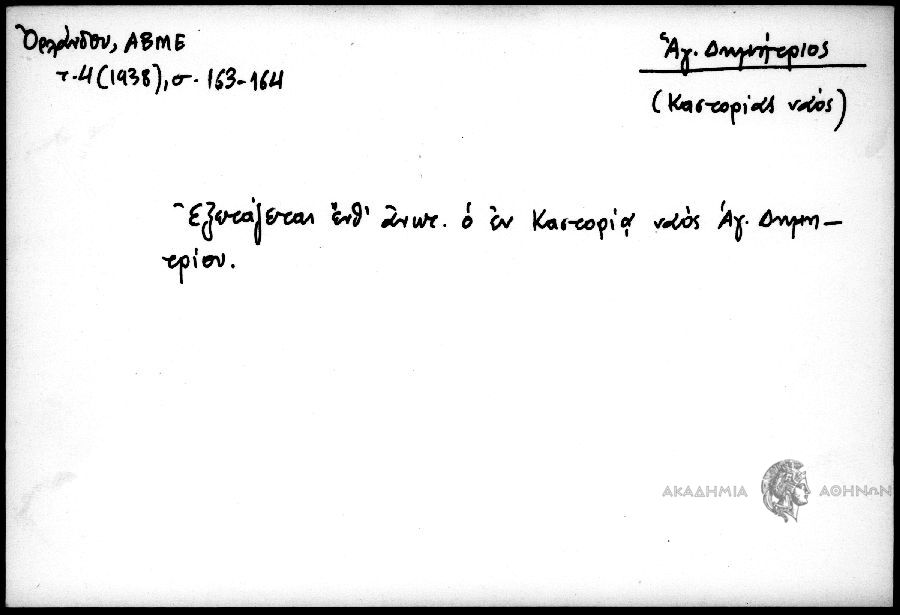 Ὀρλάνδου, ΑΒΜΕ
τ. 4 (1938), σ. 163-164
Ἅγ. Δημήτριος
(Καστοριᾶς ναός)
Ἐξετάζεται ἔνθ' ἄνωτ. ὁ ἐν Καστορίᾳ ναὸς Ἁγ. Δημη-
τρίου.
ΑΚΑΔΗΜΙΑ ΑΘΗΝΩΝ